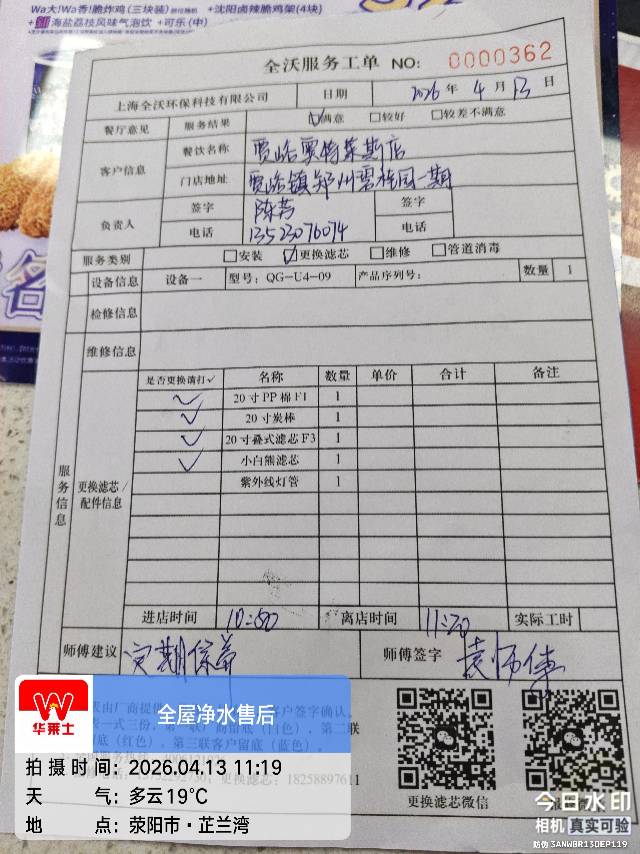 Wa大!Wa香!脆炸鸡(三块装) +沈阳卤辣脆鸡架(4块)
海盐荔枝风味气泡饮 +可乐(中)
全沃服务工单 NO: 0000362
上海全沃环保科技有限公司 日期 2026年 4月 13日
餐厅意见 服务结果 ☑满意 □较好 □较差不满意
客户信息 餐饮名称 贾峪寨特莱斯店
门店地址 贾峪镇郑州碧桂园一期
负责人 签字 陈芳 签字
电话 13523076074 电话
服务类别 □安装 ☑更换滤芯 □维修 □管道消毒
服务信息
设备信息 设备一 型号: QG-U4-09 产品序列号: 数量 1
检修信息
维修信息
更换滤芯/配件信息
是否更换请打✓ 名称 数量 单价 合计 备注
✓ 20寸PP棉F1 1
✓ 20寸炭棒 1
✓ 20寸叠式滤芯F3 1
✓ 小白熊滤芯 1
紫外线灯管 1
进店时间 10:50 离店时间 11:20 实际工时
师傅建议 定期保养 师傅签字 袁师傅
18258897611
更换滤芯微信
华莱士
全屋净水售后
拍摄时间: 2026.04.13 11:19
天气: 多云19℃
地点: 荥阳市·芷兰湾
今日水印
相机 真实可验
防伪 3ANWBR13DEP119